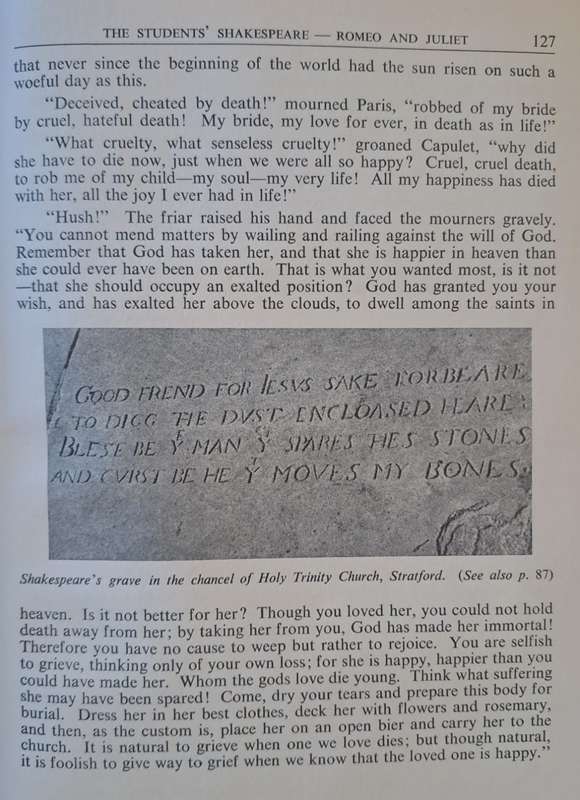 THE STUDENTS' SHAKESPEARE — ROMEO AND JULIET 127
that never since the beginning of the world had the sun risen on such a
woeful day as this.
"Deceived, cheated by death!" mourned Paris, "robbed of my bride
by cruel, hateful death! My bride, my love for ever, in death as in life!"
"What cruelty, what senseless cruelty!" groaned Capulet, "why did
she have to die now, just when we were all so happy? Cruel, cruel death,
to rob me of my child—my soul—my very life! All my happiness has died
with her, all the joy I ever had in life!"
"Hush!" The friar raised his hand and faced the mourners gravely.
"You cannot mend matters by wailing and railing against the will of God.
Remember that God has taken her, and that she is happier in heaven than
she could ever have been on earth. That is what you wanted most, is it not
—that she should occupy an exalted position? God has granted you your
wish, and has exalted her above the clouds, to dwell among the saints in
GOOD FREND FOR IESVS SAKE FORBEARE
TO DIGG THE DVST ENCLOASED HEARE:
BLESE BE Yᵉ MAN Yᵗ SPARES THES STONES
AND CVRST BE HE Yᵗ MOVES MY BONES.
Shakespeare's grave in the chancel of Holy Trinity Church, Stratford. (See also p. 87)
heaven. Is it not better for her? Though you loved her, you could not hold
death away from her; by taking her from you, God has made her immortal!
Therefore you have no cause to weep but rather to rejoice. You are selfish
to grieve, thinking only of your own loss; for she is happy, happier than you
could have made her. Whom the gods love die young. Think what suffering
she may have been spared! Come, dry your tears and prepare this body for
burial. Dress her in her best clothes, deck her with flowers and rosemary,
and then, as the custom is, place her on an open bier and carry her to the
church. It is natural to grieve when one we love dies; but though natural,
it is foolish to give way to grief when we know that the loved one is happy."